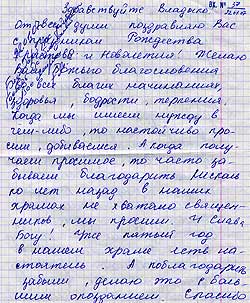 Вх. №
Здравствуйте Владыко
От всей души поздравляю Вас
с праздником Рождества
Христова и Новолетия! Желаю
Вам Божью благословения
во всех благих начинаниях,
здоровья, бодрости, терпения.
Когда мы имеем нужду в
чем-либо, то настойчиво про-
сим, добиваемся. А когда полу-
чаем просимое, то часто за-
бываем благодарить. Несколь-
ко лет назад в наших
храмах не хватало священ-
ников, мы просили. И Слава
Богу! Уже пятый год
в нашем храме есть на-
стоятель. А поблагодарить
забыли, делаю это с боль-
шим опозданием. Спасибо